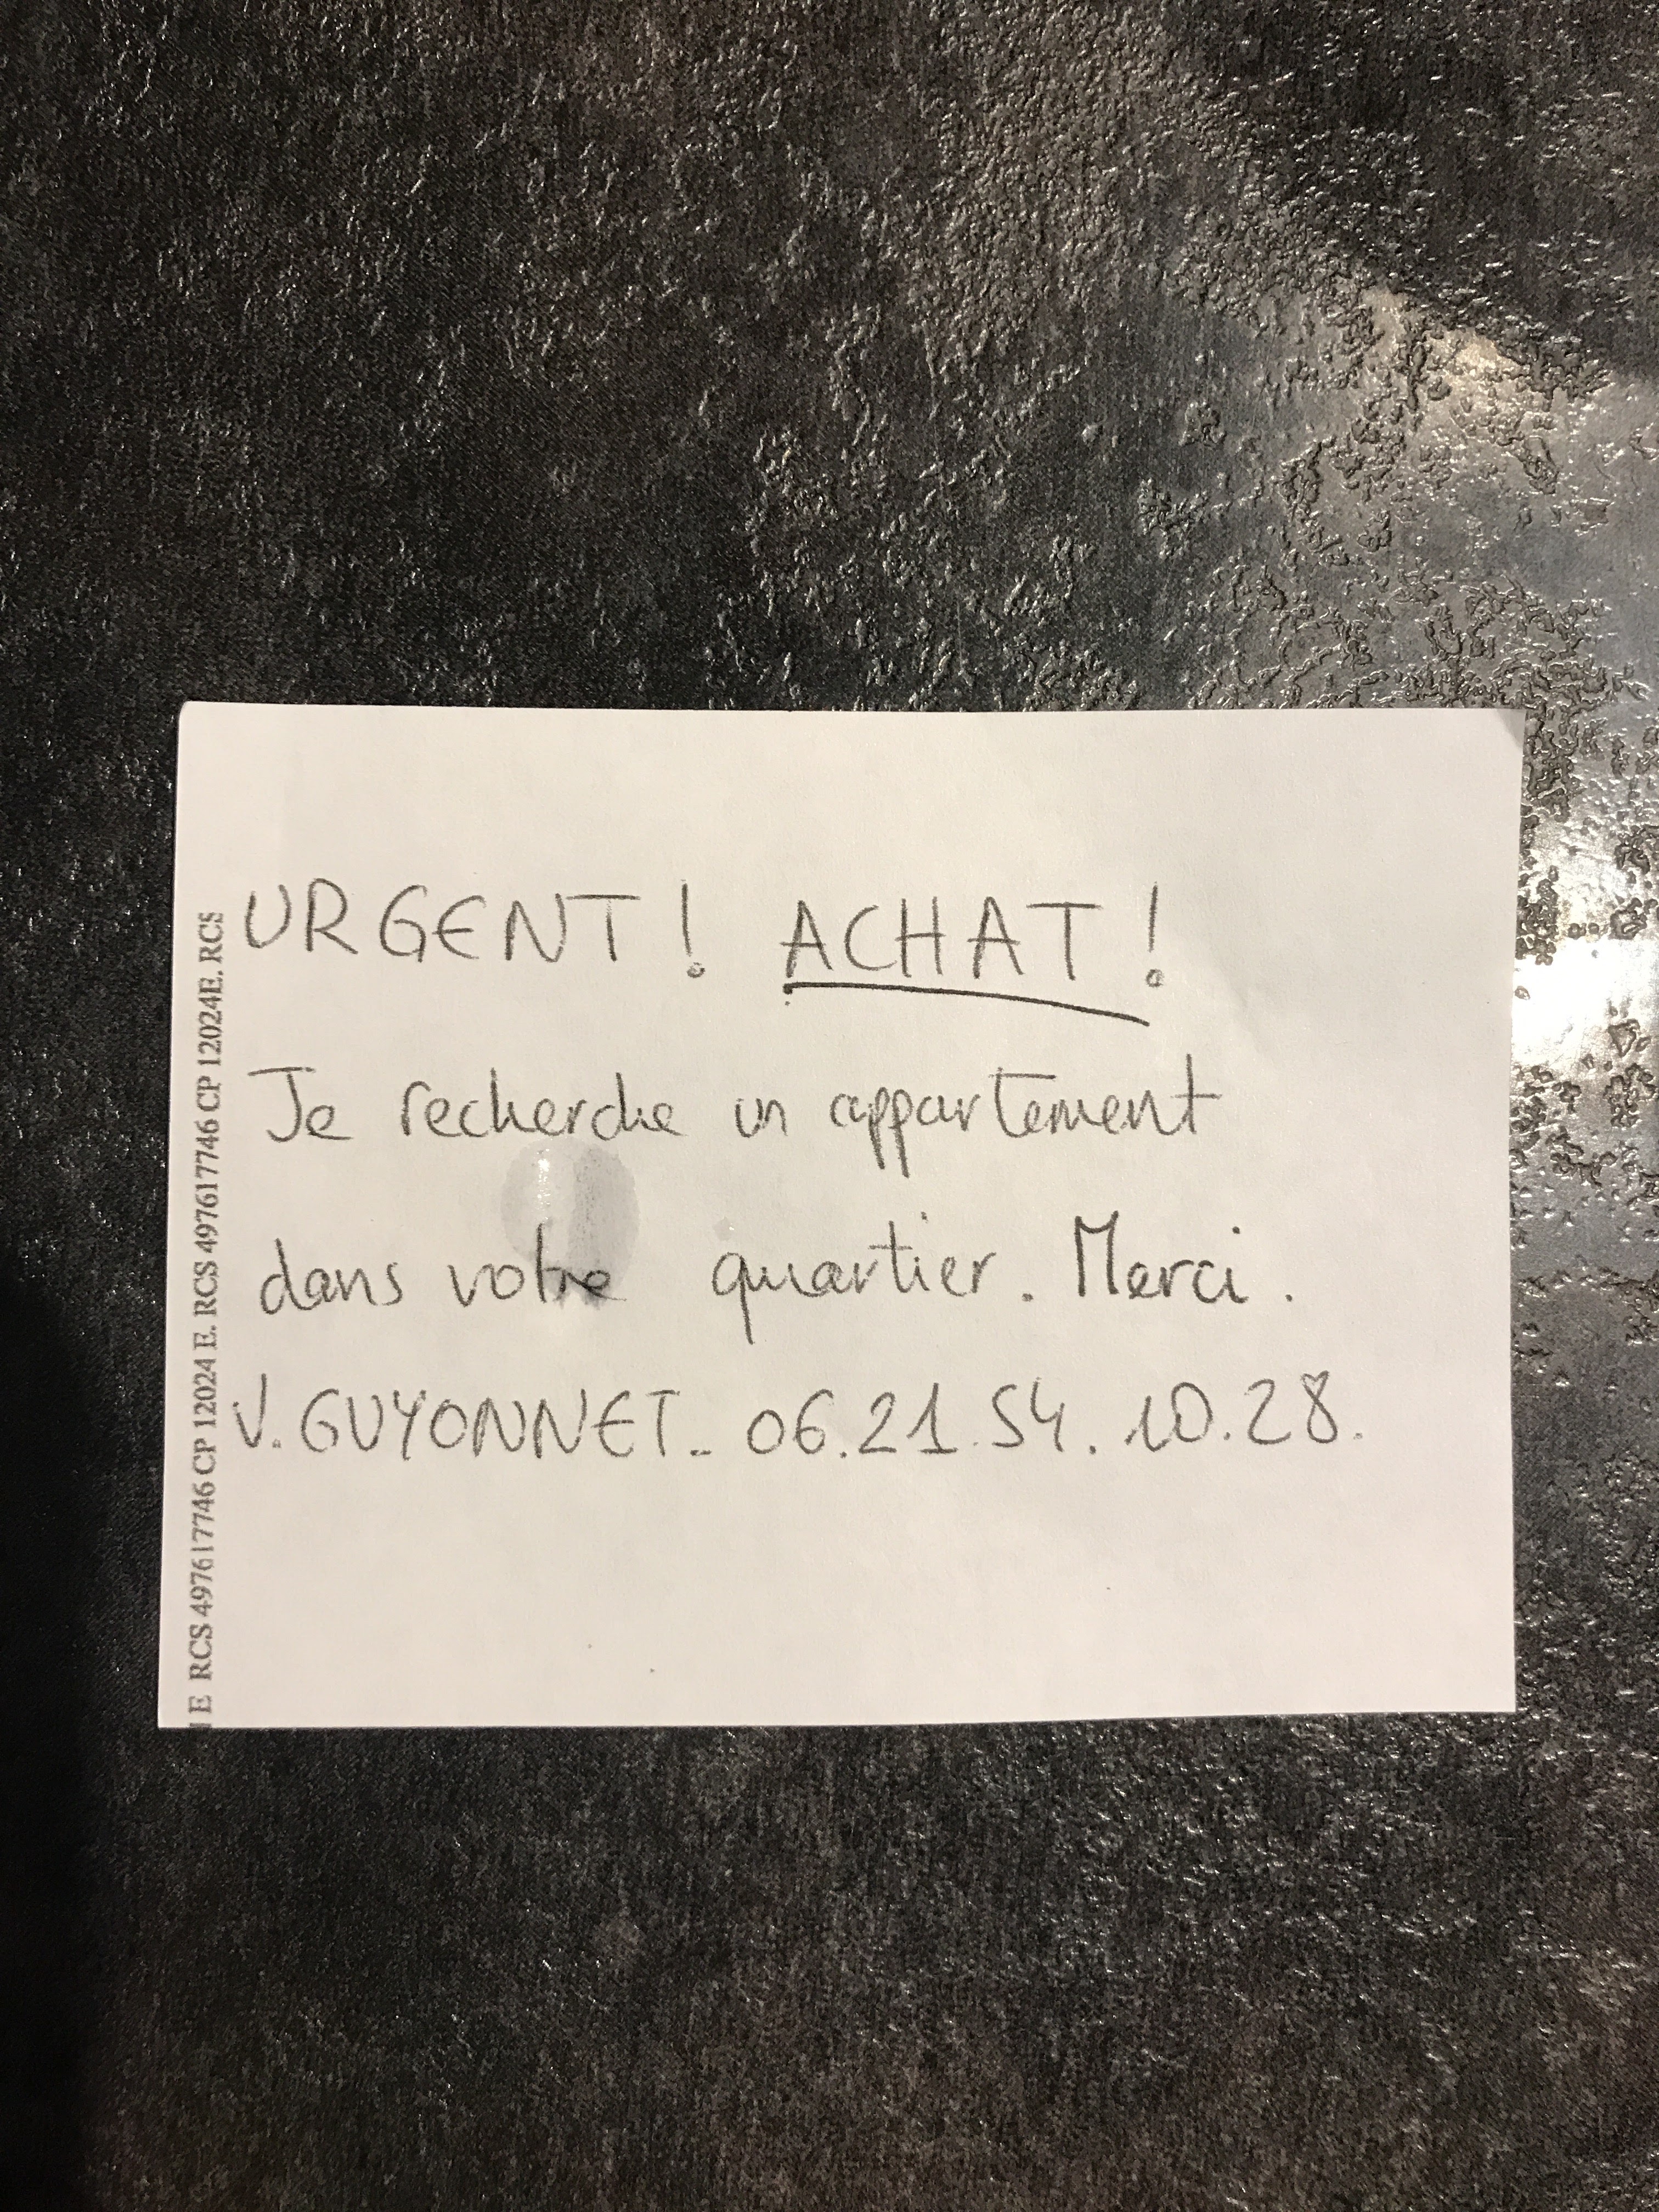 URGENT ! ACHAT !
Je recherche un appartement
dans votre quartier. Merci.
V. GUYONNET. 06.21.54.10.28.
E RCS 497617746 CP 12024 E. RCS 497617746 CP 12024E. RCS